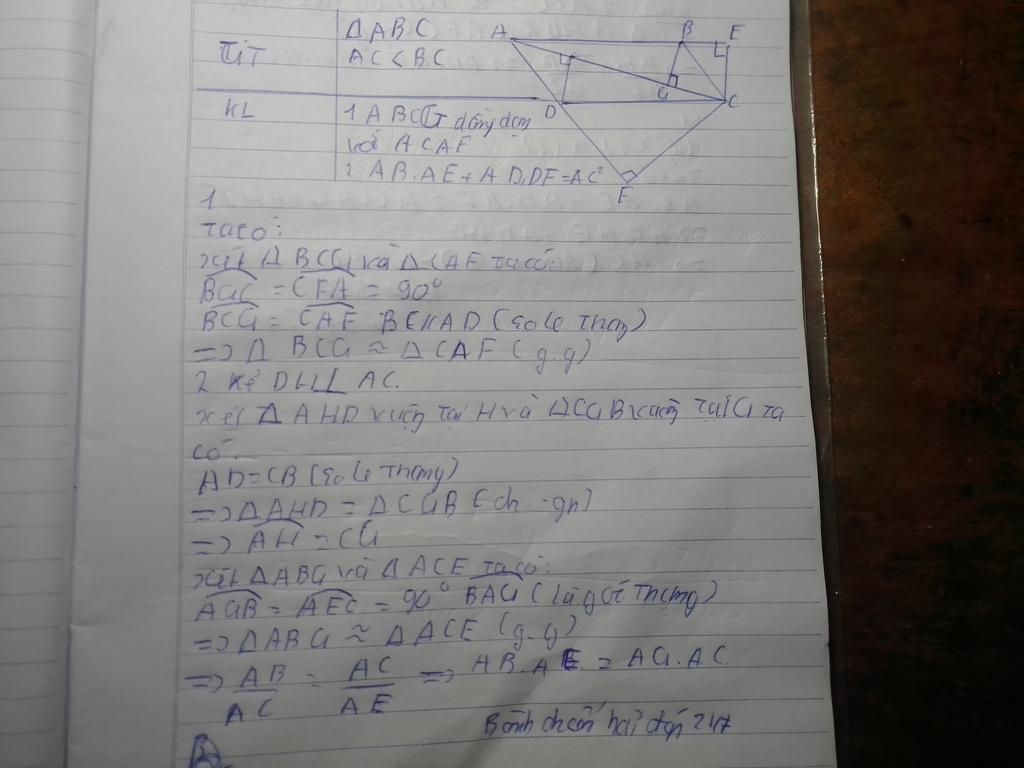 GT
ΔABC
AC < BC
KL
1 ΔBCG đồng dạng
với ΔCAF
2 AB.AE + AD.DF = AC²
A B E
G
D C
F
1
Ta có:
xét Δ BCG và Δ CAF ta có:
BGC = CFA = 90°
BCG = CAF BC//AD (so le trong)
=> Δ BCG ≈ Δ CAF (g.g)
2 Kẻ DH⊥ AC.
xét Δ AHD vuông tại H và ΔCGB vuông tại G ta
có:
AD = CB (so le trong)
=> ΔAHD = ΔCGB (ch - gn)
=> AH = CG
xét ΔABG và ΔACE ta có:
AGB = AEC = 90° BAG (là góc chung)
=> ΔABG ≈ ΔACE (g.g)
=> AB/AC = AC/AE => AB.AE = AG.AC.
24
B